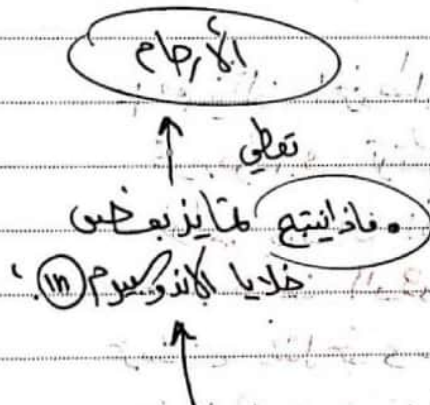 الأرحام
تعطي
• ماذا ينتج لتمايز بعض
خلايا الاندوكسيوم (1n)